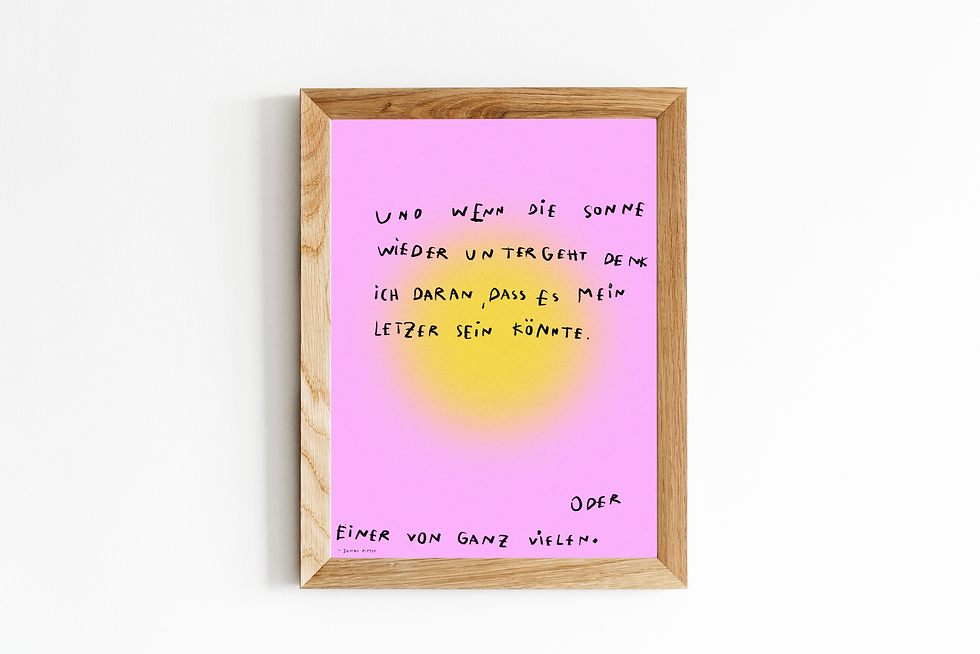 UND WENN DIE SONNE
WIEDER UNTERGEHT DENK
ICH DARAN, DASS ES MEIN
LETZER SEIN KÖNNTE.
ODER
EINER VON GANZ VIELEN.